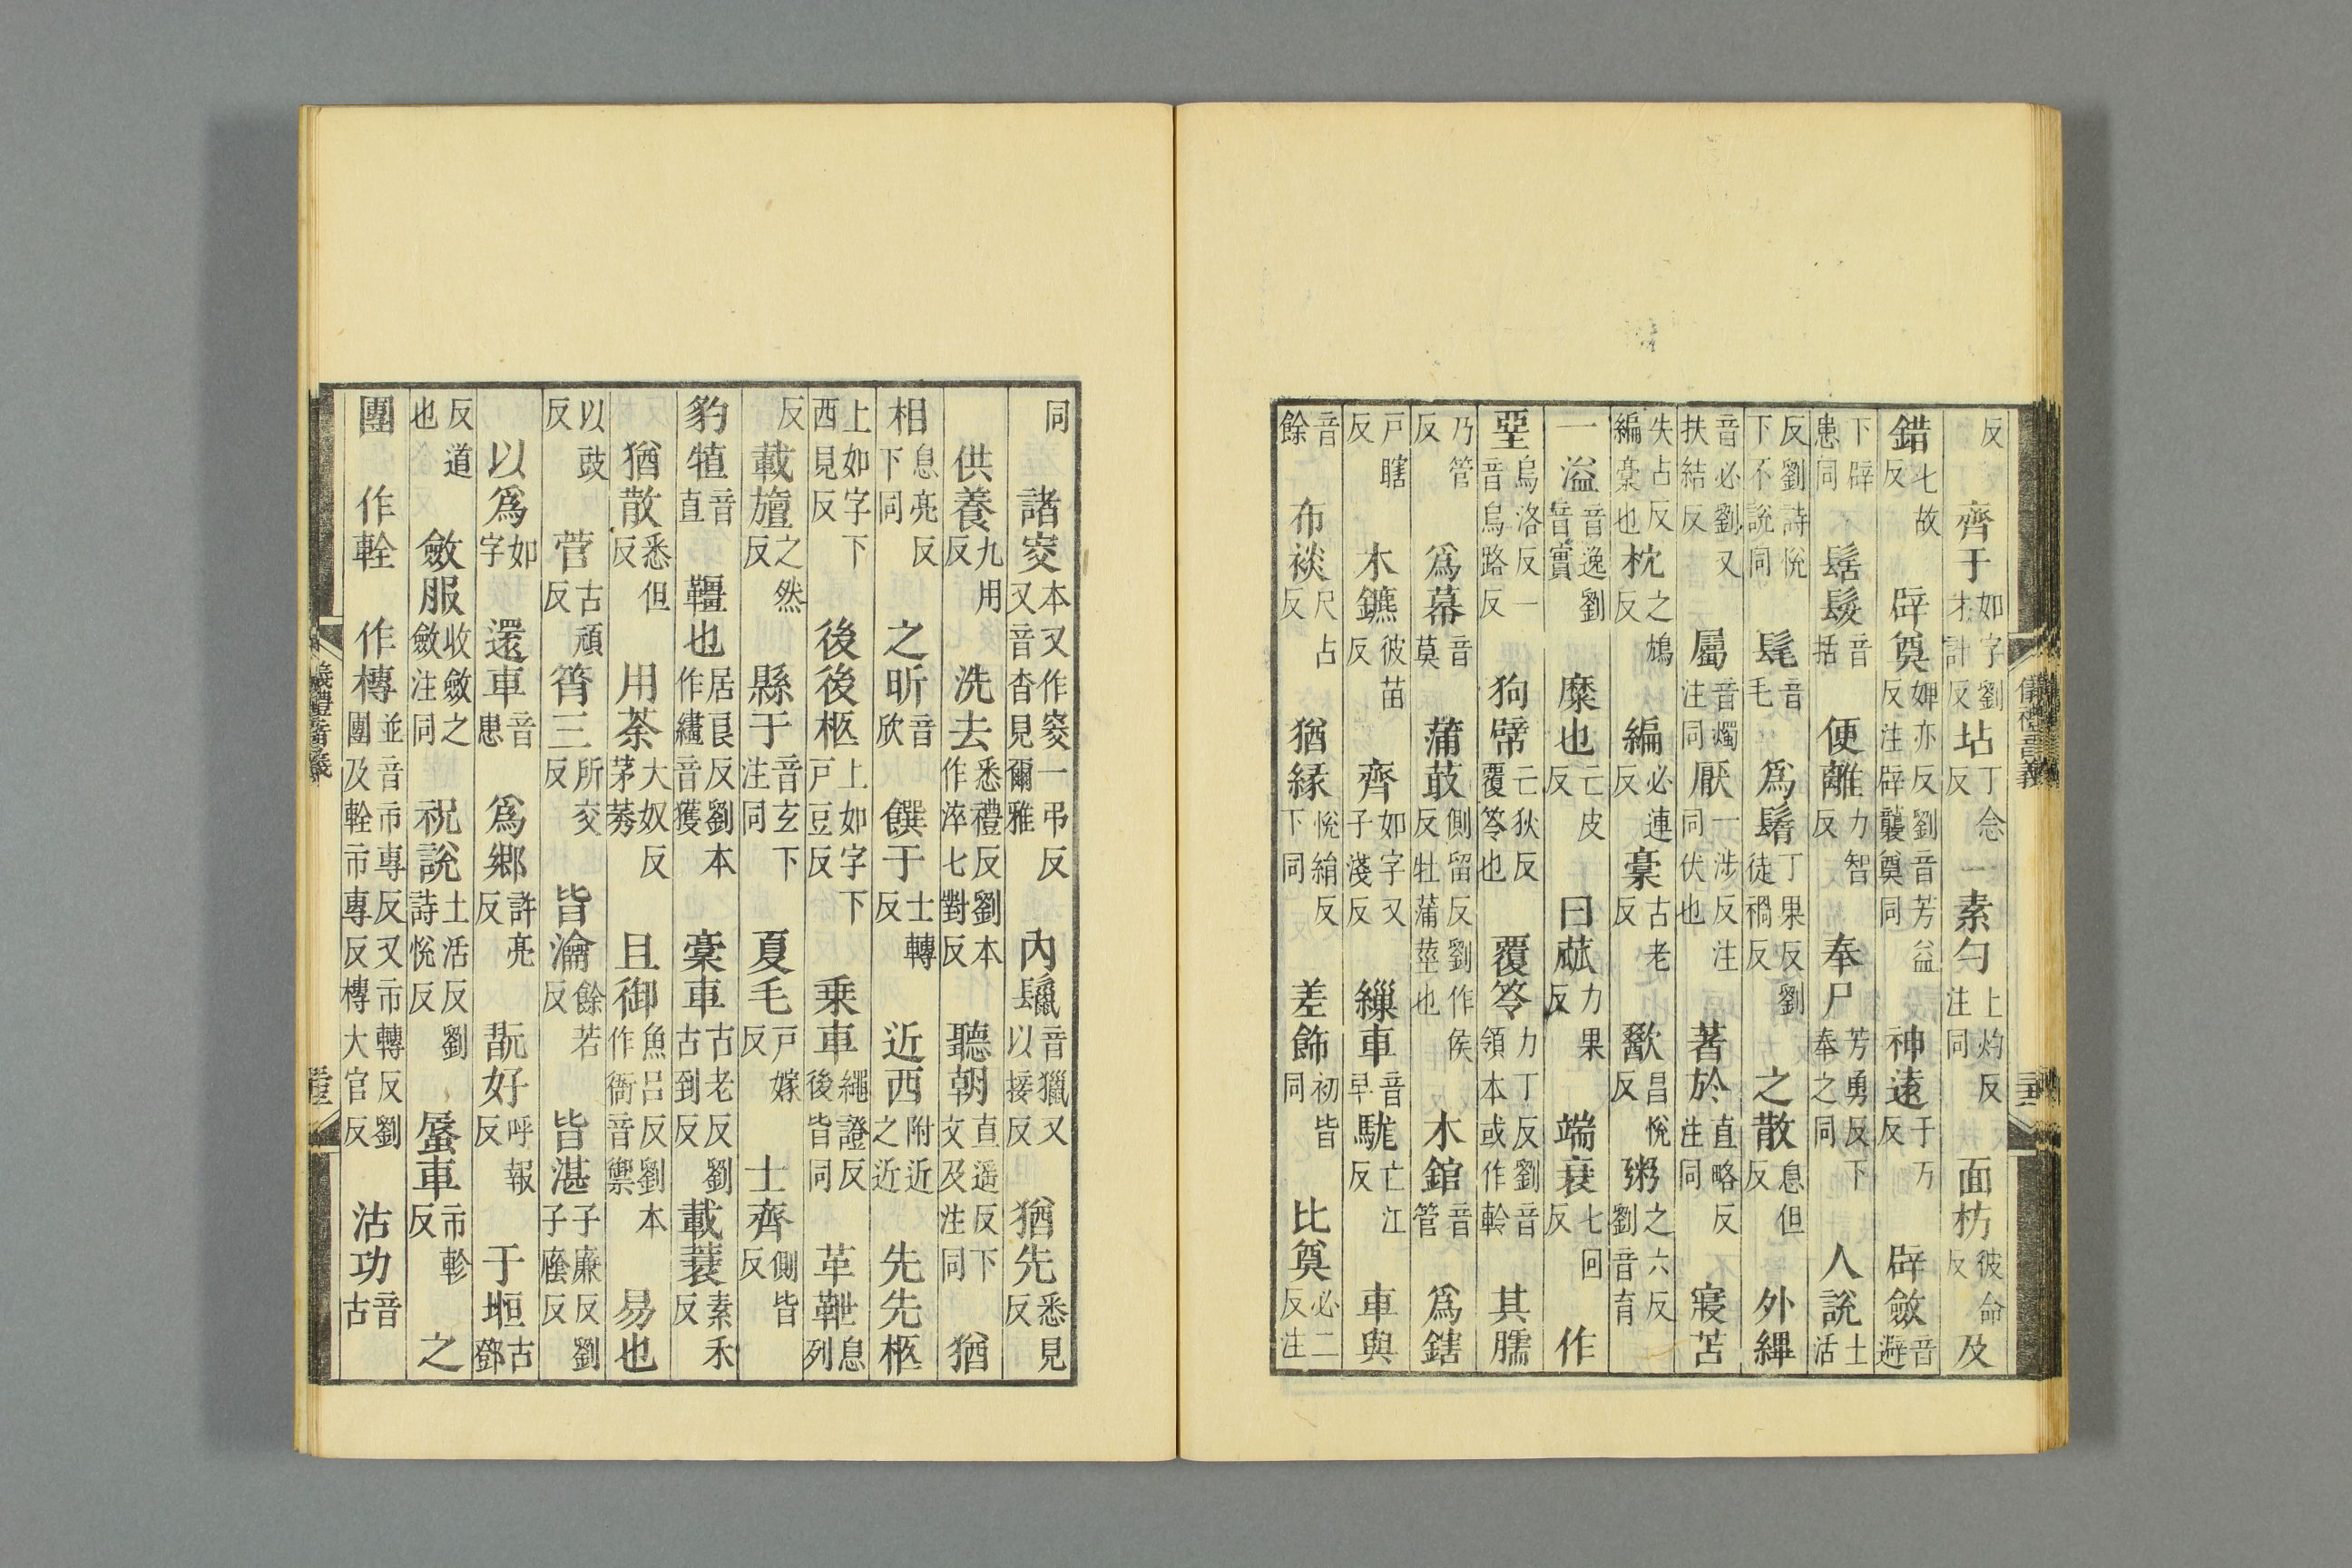 反齊于如字劉才計反坫丁念反一素勺上灼反注同面枋彼命反及
錯七故反辟奠婢亦反劉音芳益反注辟襲奠同神遠于万反辟斂音避
下辟患同髺髮音括便離力智反奉尸芳勇反下奉之同人說土活
反劉詩悅下不說同髦音毛爲鬌丁果反劉徒禍反之散息但反外縪
音必劉又扶結反屬音燭注同厭一涉反注同伏也著於直略反注同寢苫
失占反編稾也枕之鴆反編必連反稾古老反歠昌悅反粥之六反劉音育
一溢音逸劉音實糜也亡皮反曰蓏力果反端衰七回反作
堊烏洛反一音烏路反狗幦亡狄反覆笭也覆笭力丁反劉音領本或作軨其臑
乃管反爲幕音莫蒲菆側留反劉作侯反牡蒲莖也木錧音管爲鎋
戶瞎反木鑣彼苗反齊如字又子淺反繅車音早駹亡江反車與
音餘布裧尺占反猶緣悅絹反下同差飾初皆同比奠必二反注
儀禮音義
同諸窔本又作窔一弔反又音杳見爾雅內鬣音獵又以接反猶先悉見反
供養九用反洗去悉禮反劉本作淬七對反聽朝直遥反下文及注同猶
相息亮反下同之昕音欣饌于士轉反近西附近之近先先柩
上如字下西見反後後柩上如字下戶豆反乗車繩證反後皆同革靾息列
反載旜之然反縣于音玄下注同夏毛戶嫁反士齊側皆反
豹犆音直韁也居良反劉本作繣音獲稾車古老反劉古到反載蓑素禾反
猶散悉但反用荼大奴反茅莠且御魚呂反劉本作衙音禦易也
以豉反菅古頑反筲三所交反皆瀹餘若反皆湛子廉反劉子廕反
以爲如字還車音患爲鄉許亮反翫好呼報反于堩古鄧
反道也斂服收斂之斂注同祝說土活反劉詩悅反蜃車市軫反之
團作輇作槫並音市專反又市轉反劉團及輇市專反槫大官反沽功音古
儀禮音義